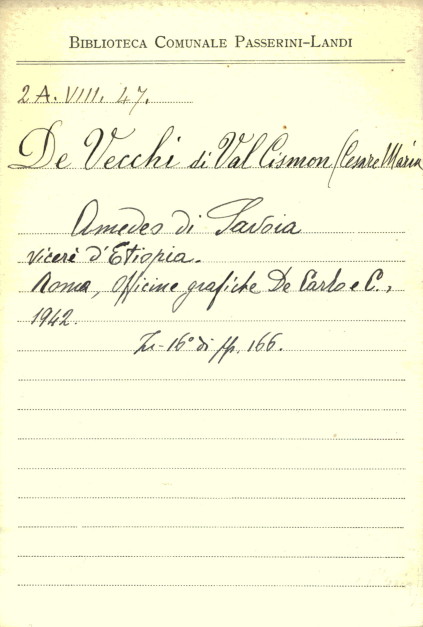 BIBLIOTECA COMUNALE PASSERINI-LANDI
2 A. VIII. 47.
De Vecchi di Val Cismon (Cesare Maria
Amedeo di Savoia
Vicerè d'Etiopia.
Roma, Officine grafiche De Carlo e C.,
1942.
In-16° di pp. 166.